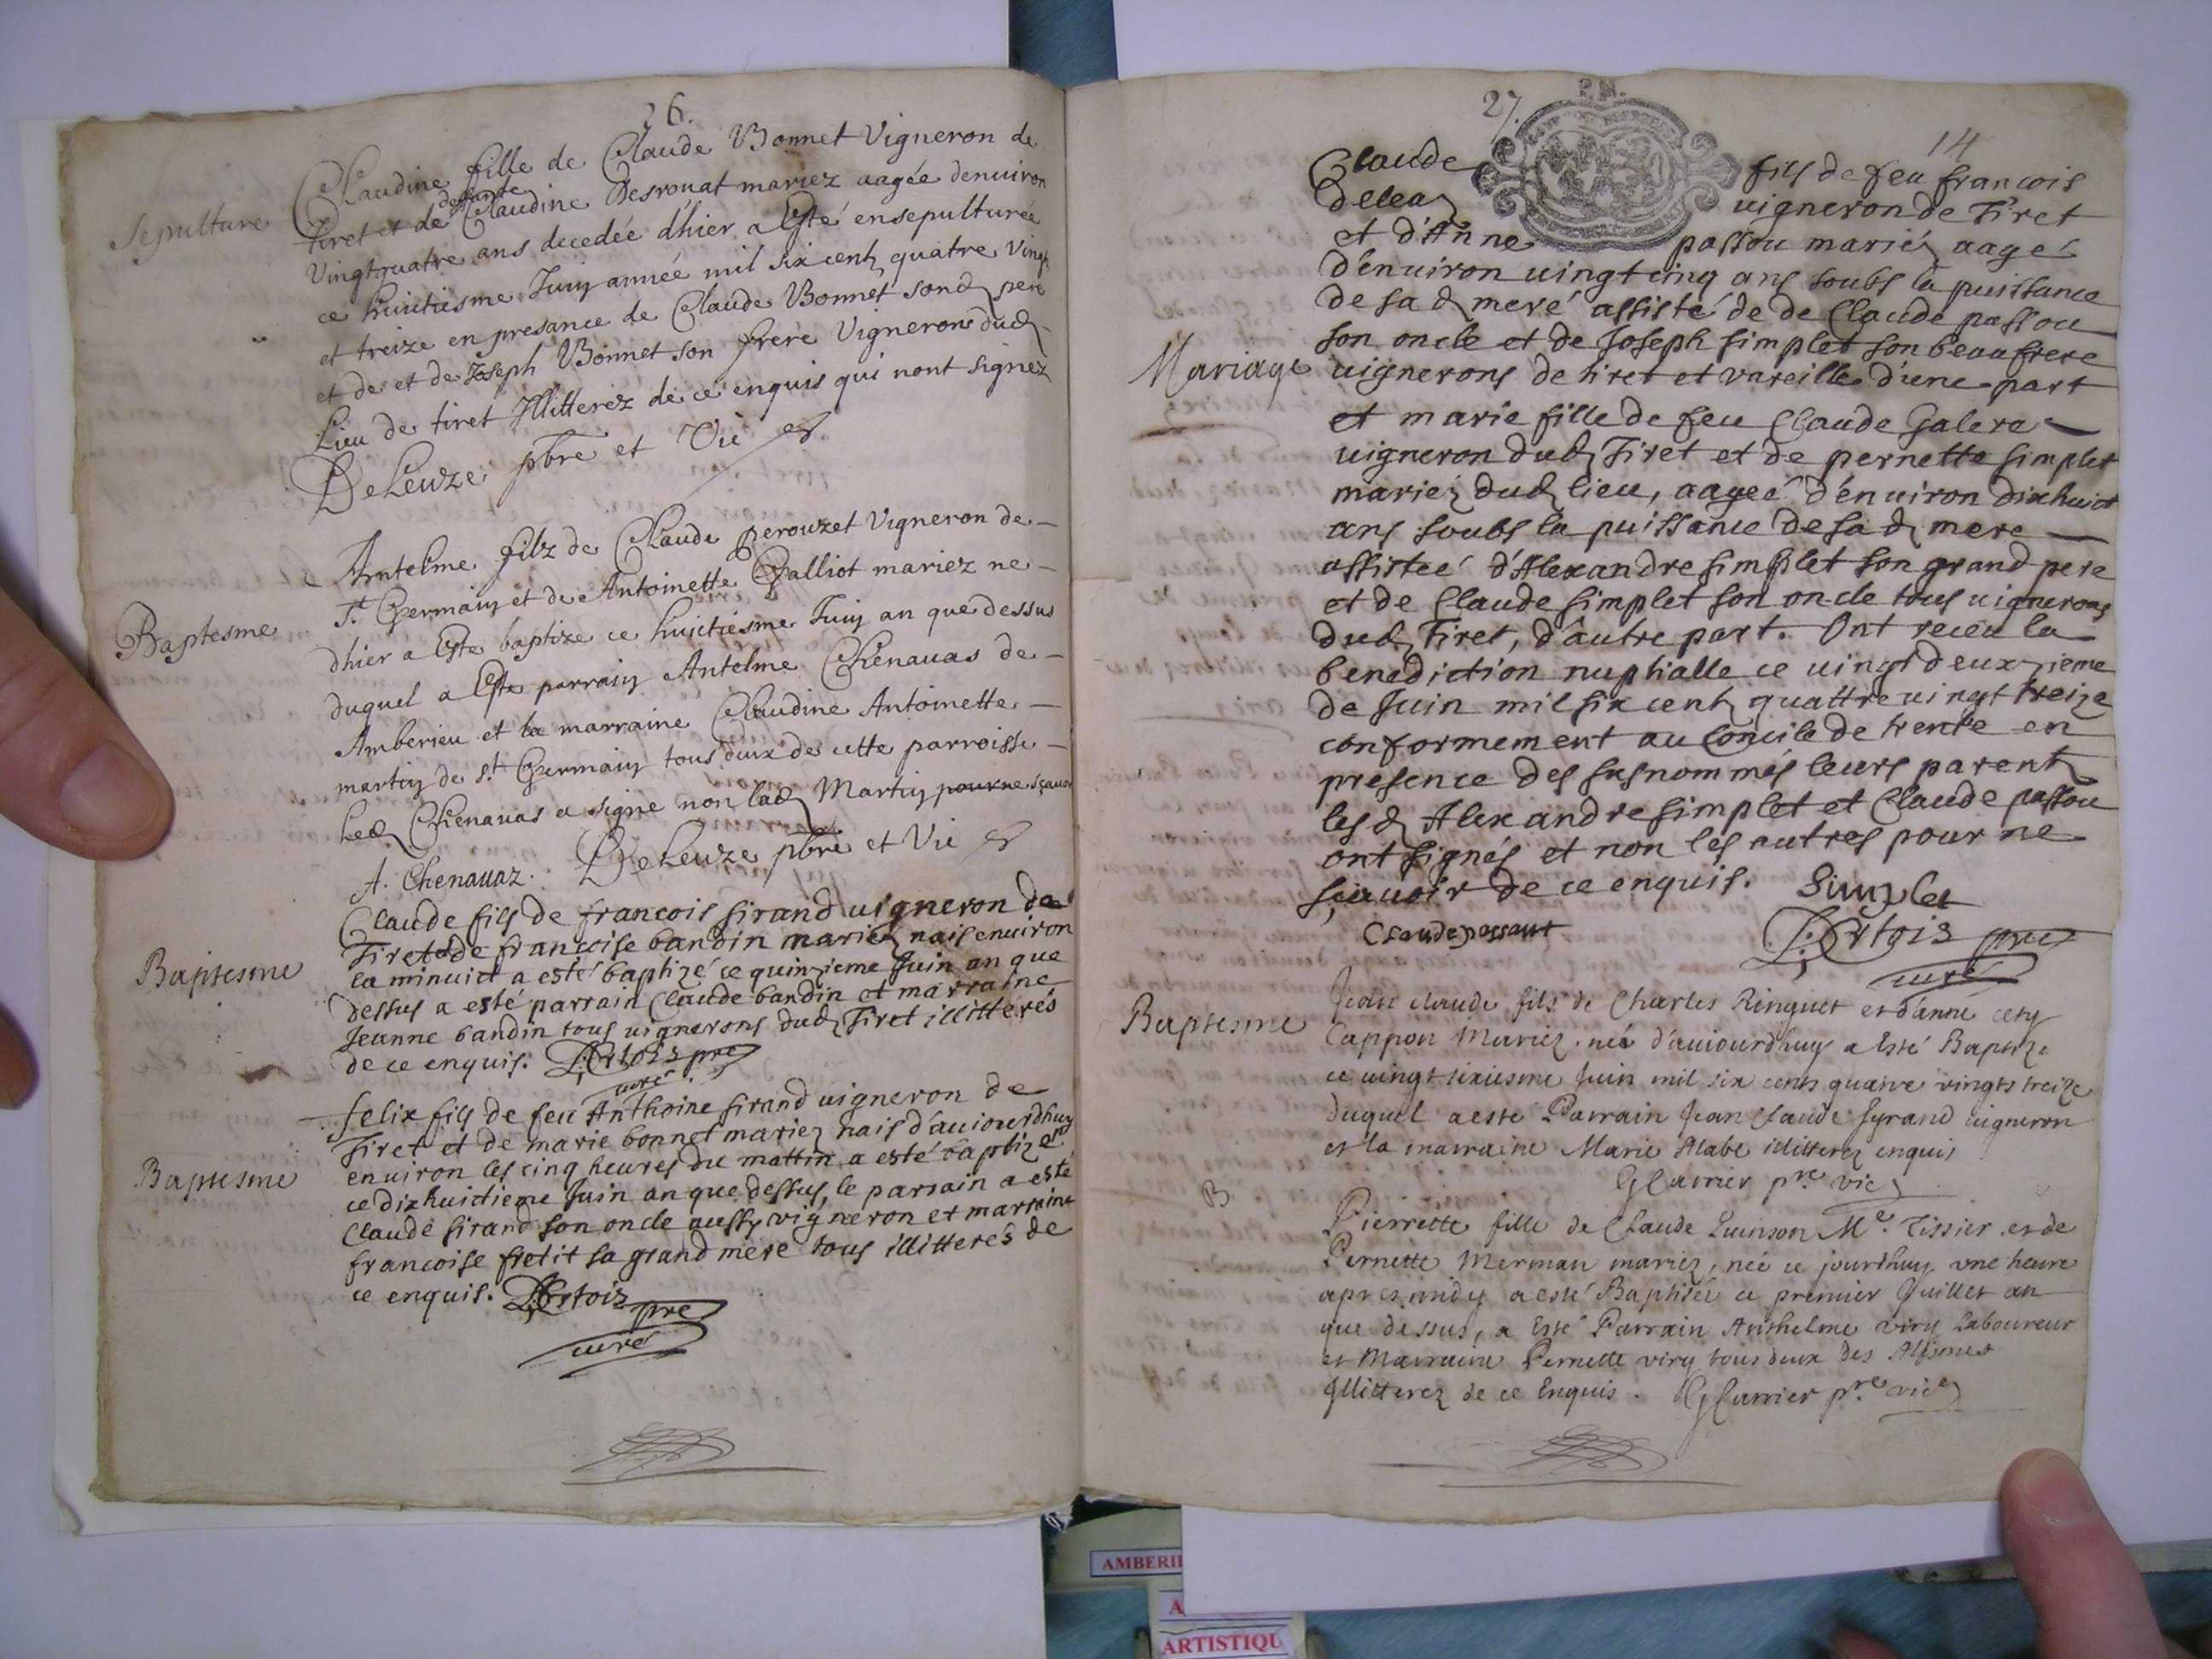 26.
Sepulture
Claudine fille de Claude Bonnet Vigneron de
Tiret et de deffunte Claudine Desrouat mariez aagée denuiron
Vingtquatre ans decedée d'hier a Esté ensepulturée
ce huictiesme Juin année mil six centz quatre Vingt
et treize en presance de Claude Bonnet sond pere
et de et de Joseph Bonnet son frere Vignerons dud
Lieu de tiret Jllitterez de ce enquis qui nont signez
DeLeuze pbre et Vic
Baptesme
Antelme filz de Claude perouzet Vigneron de
St Germain et de Antoinette Galliot mariez ne
dhier a Este baptize ce huictiesme Juin an que dessus
duquel a Este parrain Antelme Chenauas de
Amberieu et la marraine Claudine Antoinette
martin de st Germain tous deux de cette parroisse
Led Chenauas a signe non lad Martin pour ne sçauoir
A. Chenauaz. DeLeuze pbre et Vic
Baptesme
Claude fils de francois sirand uigneron de
Tiret et de francoise bandin mariez nais enuiron
la minuict a esté baptizé ce quinzieme Juin an que
dessus a esté parrain Claude bandin et marraine
Jeanne bandin tous uignerons dud Tiret illitterés
de ce enquis. D:Ertois pre
curé
Baptesme
felix fils de feu Anthoine sirand uigneron de
Tiret et de marie bonnet mariez nais d'auiourdhuy
enuiron les cinq heures du mattin a esté baptizé
ce dixhuictieme Juin an que dessus, le parrain a esté
Claude sirand son oncle aussy vigneron et marraine
francoise fretit sa grand mere tous illitterés de
ce enquis. D:Ertois pre
curé
27.
14
Claude fils de feu francois
Delea uigneron de Tiret
et d'Anne passou mariéz aagé
d'enuiron uingt cinq ans soubs la puissance
de sa d mere assisté de de Claude passou
son oncle et de Joseph simplet son beaufrere
Mariage
uignerons de tiret et vareille d'une part
et marie fille de feu Claude Galera
uigneron dud Tiret et de pernette simplet
mariéz dud lieu, aageé d'enuiron dixhuict
ans soubs la puissance de sa d mere
assisteé d'Alexandre simplet son grand pere
et de Claude simplet son oncle tous uignerons
dud Tiret, d'autre part. Ont receu la
benediction nuptialle ce uingt deuxzieme
de Juin mil six centz quattre uingt treize
conformement au Concile de trente en
presence des susnommés leurs parentz
les d Alexandre simplet et Claude passou
ont signés et non les autres pour ne
sçauoir de ce enquis. Simplet
Claude passout
D:Ertois pre
curé
Baptesme
Jean Claude fils de Charles Ringuet et d'anne
Cappon Mariez. né d'auiourdhuy a Esté Baptize
ce uingt sixiesme Juin mil six cents quatre vingts treize
duquel a esté Parrain Jean Claude Syrand uigneron
et la marraine Marie Alabe illitterez enquis
GCarrier pre vic
B
Pierrette fille de Claude Luinson Me Tissier et de
Pernette Merman mariez, née ce jourdhuy vne heure
apres midy a esté Baptisée ce premier Juillet an
que dessus, a Esté Parrain Anthelme viry Laboureur
et Marraine Pernette viry tous deux des
Jllitterez de ce Enquis. GCarrier pre vic
AMBERI
A
ARTISTIQU